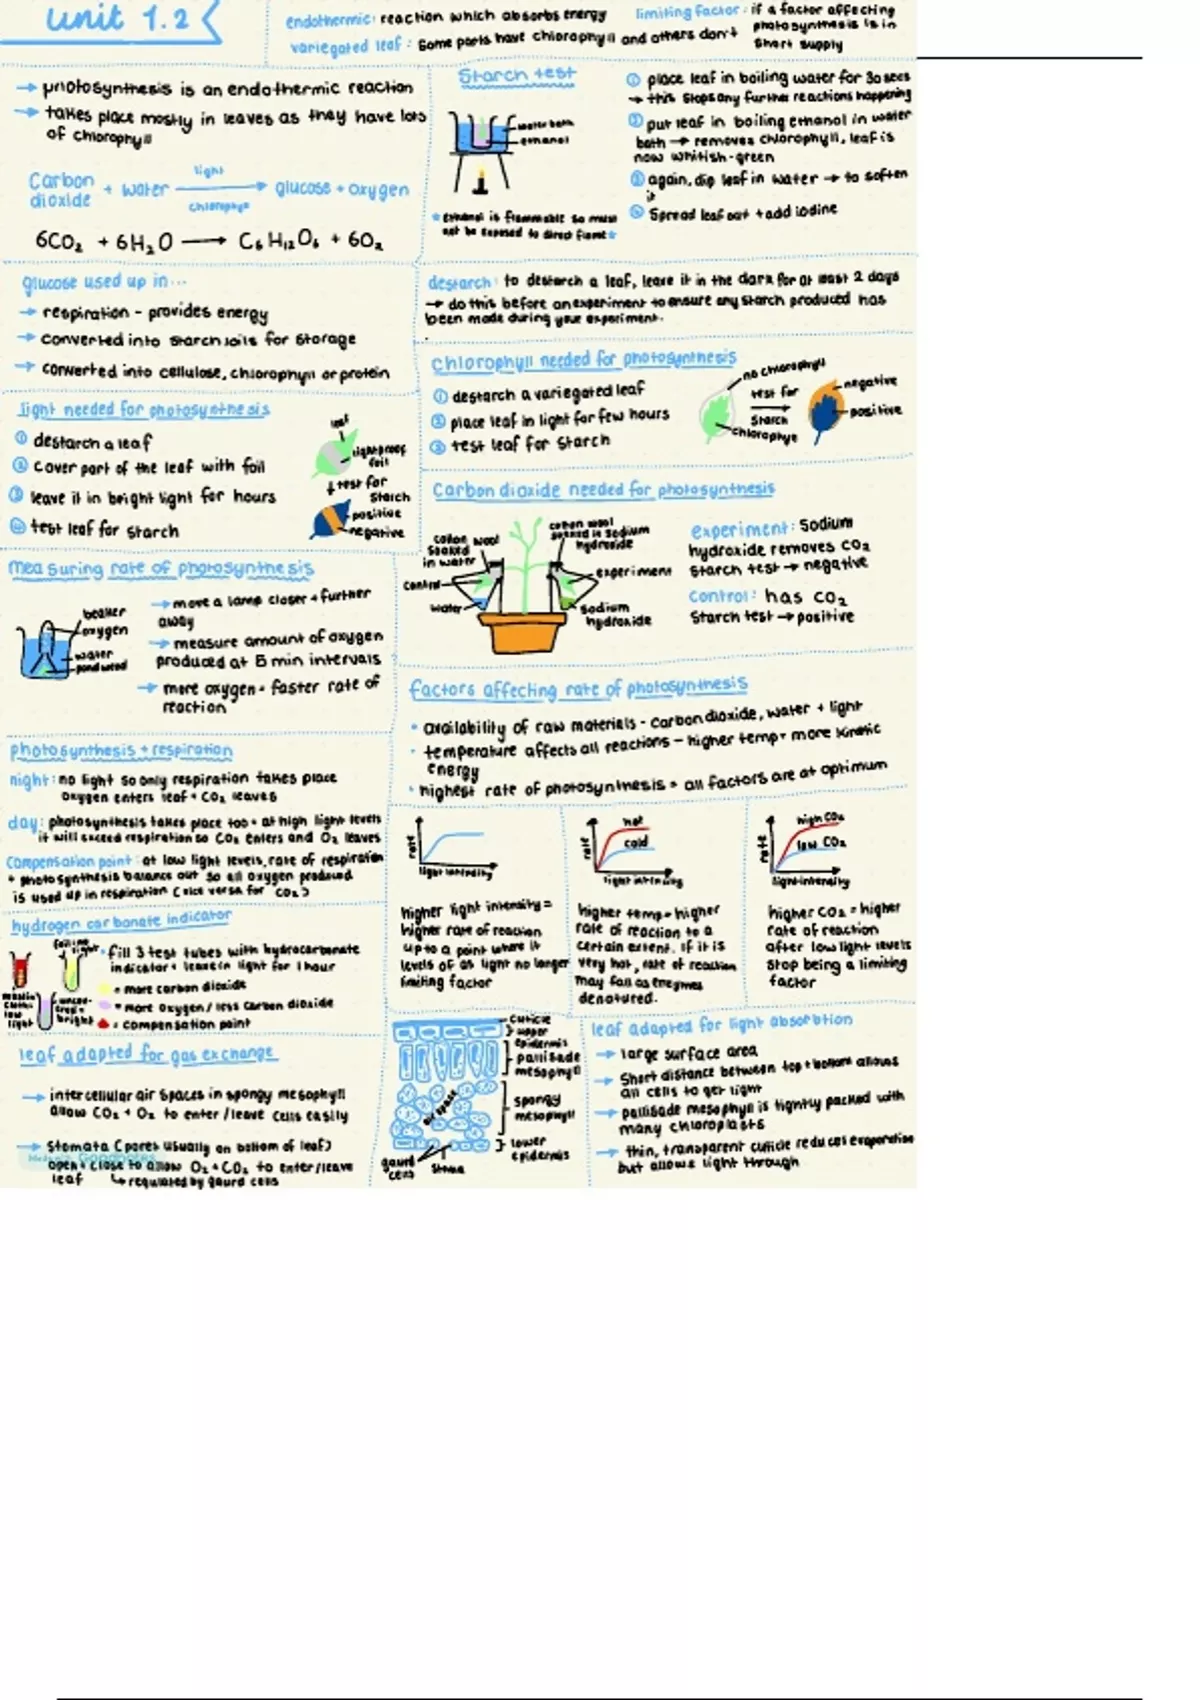 Unit 1.2
endothermic: reaction which absorbs energy
variegated leaf: some parts have chlorophyll and others don't
limiting factor: if a factor affecting
photosynthesis is in
short supply
→ photosynthesis is an endothermic reaction
→ takes place mostly in leaves as they have lots
of chlorophyll
Carbon dioxide + water → glucose + oxygen
light
chlorophyll
6CO₂ + 6H₂O → C₆H₁₂O₆ + 6O₂
Starch test
water bath
ethanol
* ethanol is flammable so must
not be exposed to direct flame *
① place leaf in boiling water for 30 secs
→ this stops any further reactions happening
② put leaf in boiling ethanol in water
bath → removes chlorophyll, leaf is
now whitish-green
③ again, dip leaf in water → to soften
it
④ spread leaf out + add iodine
glucose used up in...
→ respiration - provides energy
→ converted into starch/oils for storage
→ converted into cellulose, chlorophyll or protein
destarch: to destarch a leaf, leave it in the dark for at least 2 days
→ do this before an experiment to ensure any starch produced has
been made during your experiment.
light needed for photosynthesis
① destarch a leaf
② cover part of the leaf with foil
③ leave it in bright light for hours
④ test leaf for starch
leaf
lightproof
foil
↓ test for
starch
positive
negative
chlorophyll needed for photosynthesis
① destarch a variegated leaf
② place leaf in light for few hours
③ test leaf for starch
no chlorophyll
test for
starch
chlorophyll
negative
positive
Carbon dioxide needed for photosynthesis
cotton wool
soaked
in water
control
water
cotton wool
soaked in sodium
hydroxide
experiment
sodium
hydroxide
experiment: sodium
hydroxide removes CO₂
starch test → negative
control: has CO₂
starch test → positive
measuring rate of photosynthesis
beaker
oxygen
water
pondweed
→ move a lamp closer + further
away
→ measure amount of oxygen
produced at 5 min intervals
→ more oxygen = faster rate of
reaction
factors affecting rate of photosynthesis
• availability of raw materials - carbon dioxide, water + light
• temperature affects all reactions - higher temp = more kinetic
energy
• highest rate of photosynthesis = all factors are at optimum
photosynthesis + respiration
night: no light so only respiration takes place
oxygen enters leaf + CO₂ leaves
day: photosynthesis takes place too + at high light levels
it will exceed respiration so CO₂ enters and O₂ leaves
compensation point: at low light levels, rate of respiration
+ photosynthesis balance out so all oxygen produced
is used up in respiration (vice versa for CO₂)
rate
light intensity
higher light intensity =
higher rate of reaction
up to a point where it
levels off as light no longer
limiting factor
hot
cold
rate
light intensity
higher temp = higher
rate of reaction to a
certain extent. if it is
very hot, rate of reaction
may fall as enzymes
denatured.
high CO₂
low CO₂
rate
light intensity
higher CO₂ = higher
rate of reaction
after low light levels
stop being a limiting
factor
hydrogen carbonate indicator
• fill 3 test tubes with hydrocarbonate
indicator + leave in light for 1 hour
= more carbon dioxide
= more oxygen / less carbon dioxide
= compensation point
low
light
bright
leaf adapted for gas exchange
→ intercellular air spaces in spongy mesophyll
allow CO₂ + O₂ to enter/leave cells easily
→ stomata (pores usually on bottom of leaf)
open + close to allow O₂ + CO₂ to enter/leave
leaf ↳ regulated by gaurd cells
cuticle
upper
epidermis
pallisade
mesophyll
air space
spongy
mesophyll
lower
epidermis
gaurd
cells
stoma
leaf adapted for light absorbtion
→ large surface area
→ short distance between top + bottom allows
all cells to get light
→ pallisade mesophyll is tightly packed with
many chloroplasts
→ thin, transparent cuticle reduces evaporation
but allows light through